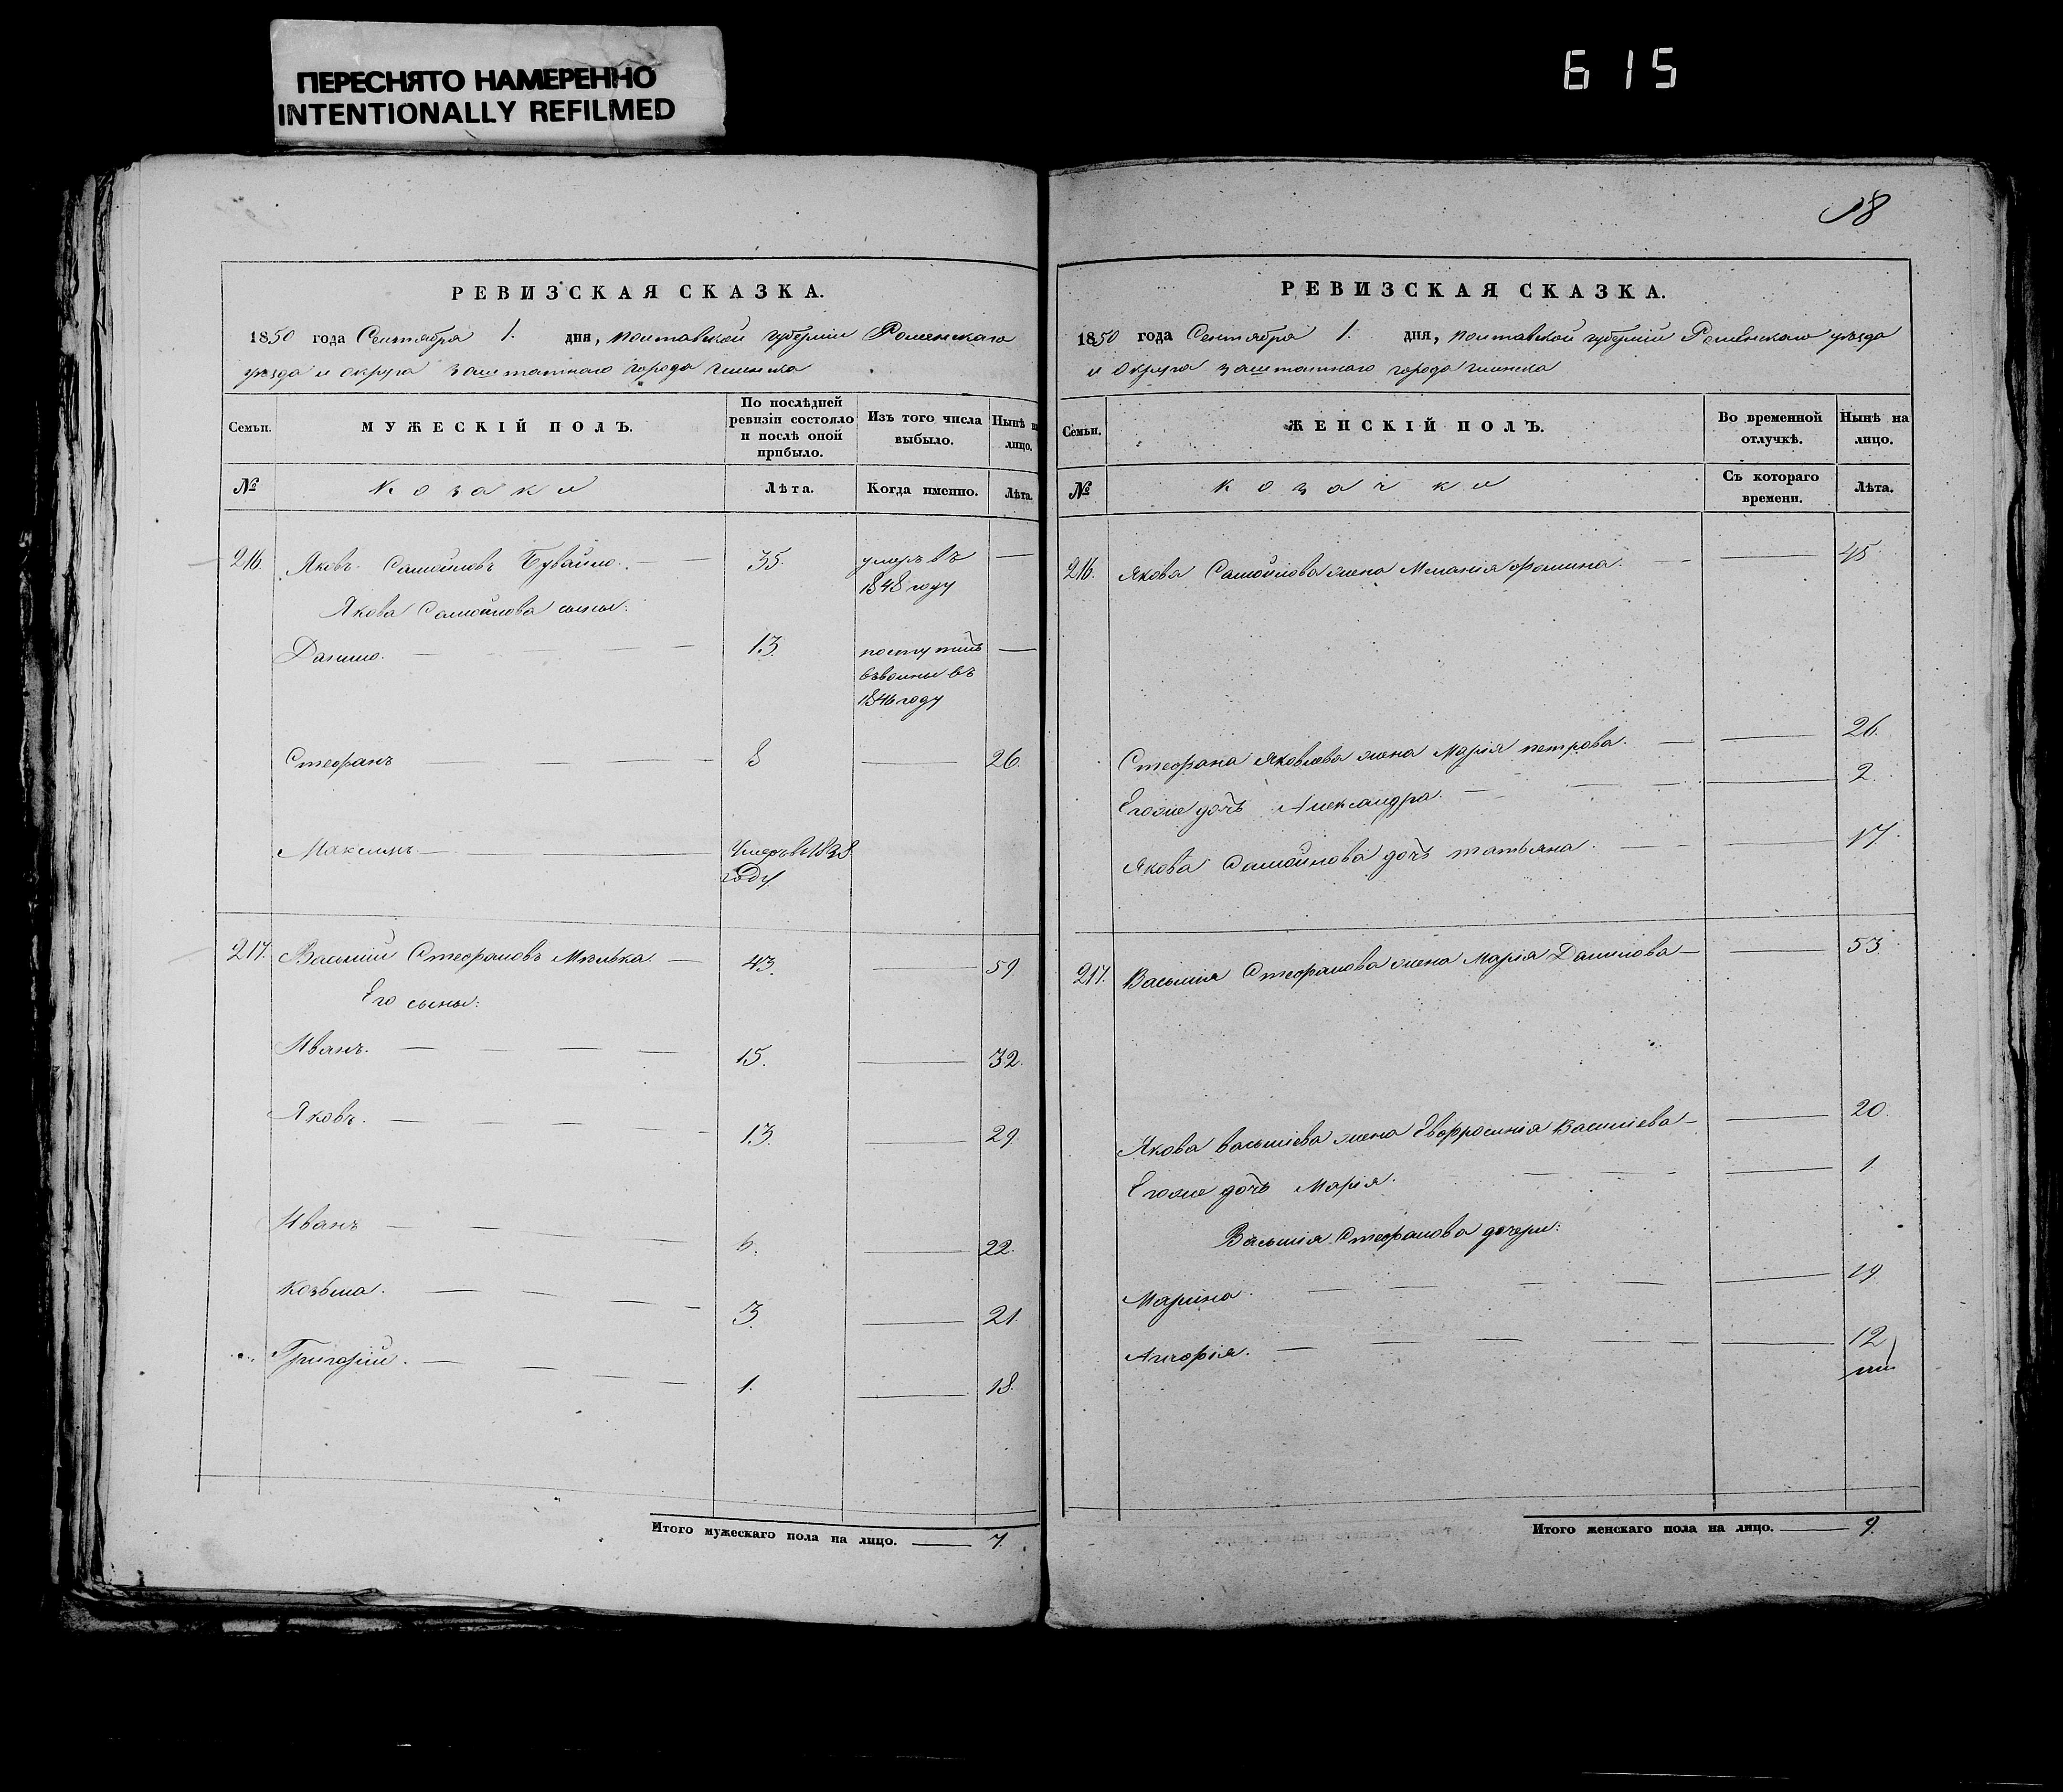 ПЕРЕСНЯТО НАМЕРЕННО
INTENTIONALLY REFILMED
615
РЕВИЗСКАЯ СКАЗКА.
1850 года Сентября 1. дня, полтавской губерніи Роменскаго
уѣзда и округа заштатнаго города глинска
Семьи.
МУЖЕСКІЙ ПОЛЪ.
По послѣдней ревизіи состояло и послѣ оной прибыло.
Изъ того числа выбыло.
Нынѣ на лицо.
№
Козаки
Лѣта.
Когда именно.
Лѣта.
216. Яковъ Самойловъ Бувайло. 35. умеръ въ —
1848 году
Якова Самойлова сыны:
Данило. 13. поступилъ —
въ
1846 году
Стефанъ 8 — 26.
Максимъ. Умеръ въ 1838
году
217. Василій Стефановъ 43. — 59
Его сыны:
Иванъ. 15. — 32.
Яковъ. 13. — 29.
Иванъ 6. — 22.
Козьма. 3. — 21.
Григорій. 1. — 18.
Итого мужескаго пола на лицо. — 7.
58
РЕВИЗСКАЯ СКАЗКА.
1850 года Сентября 1. дня, полтавской губерніи Роменскаго уѣзда
и округа заштатнаго города глинска
Семьи.
ЖЕНСКІЙ ПОЛЪ.
Во временной отлучкѣ.
Нынѣ на лицо.
№
Козачки
Съ котораго времени.
Лѣта.
216. Якова Самойлова жена Меланія Фомина. — 45.
Стефана Яковлева жена Марія петрова. — 26.
Его же дочь Александра. — 2.
Якова Самойлова дочь татьяна. — 17.
217. Василія Стефанова жена Марія Данилова — 53.
Якова васильева жена Евфросинія Василіева — 20.
Его же дочь Марія. — 1.
Василія Стефанова дочери:
Марина. — 19.
— 12
Итого женскаго пола на лицо. — 9.